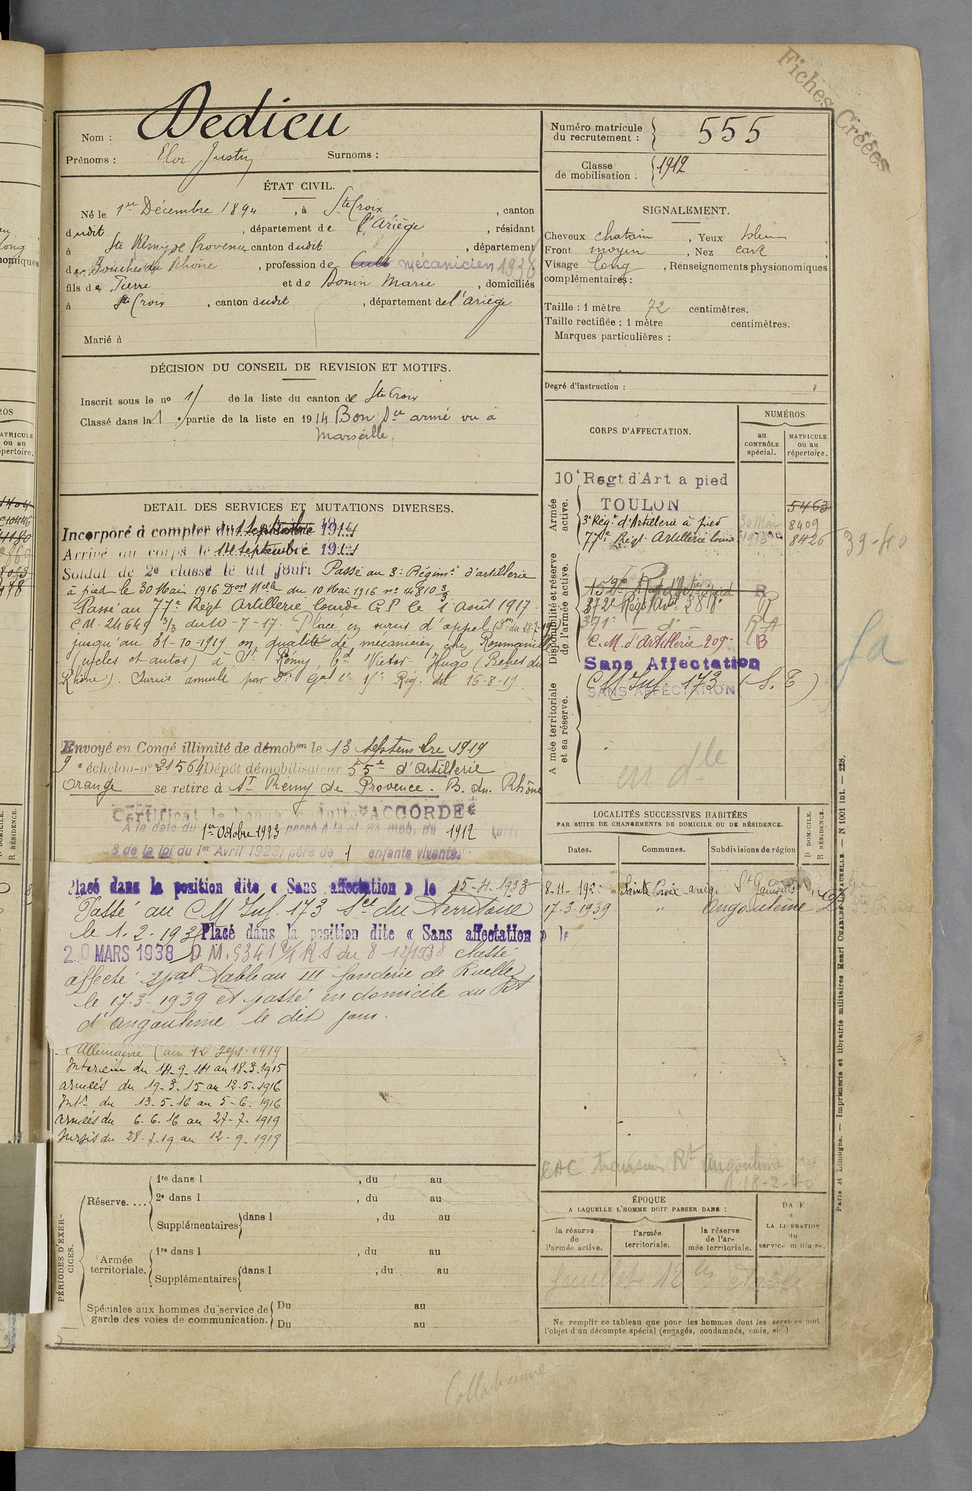 Fiches Créées
Nom : Dedieu
Prénoms : Eloi Justin Surnoms :
Numéro matricule du recrutement : 555
Classe de mobilisation : 1912
ÉTAT CIVIL.
Né le 1er Décembre 1894, à Ste Croix, canton
dudit, département de l'Ariège, résidant
à St Rémy de Provence canton dudit, département
des Bouches du Rhône, profession de Cult mécanicien 1938
fils de Pierre et de Bonin Marie, domiciliés
à Ste Croix, canton dudit, département de l'ariège
Marié à
SIGNALEMENT.
Cheveux chatain, Yeux bleu
Front moyen, Nez
Visage long, Renseignements physionomiques
complémentaires :
Taille : 1 mètre 72 centimètres.
Taille rectifiée : 1 mètre centimètres.
Marques particulières :
Degré d'instruction :
DÉCISION DU CONSEIL DE REVISION ET MOTIFS.
Inscrit sous le no 11 de la liste du canton de Ste Croix
Classé dans la 1 partie de la liste en 1914 Bon Sce armé vu à
Marseille.
CORPS D'AFFECTATION.
NUMÉROS
au CONTRÔLE spécial.
MATRICULE ou au répertoire.
Armée active.
10e Regt d'Art a pied
TOULON 5463
3e Régt d'Artillerie à pied 8409
77e Régt Artillerie lourde 8426
Disponibilité et réserve de l'armée active.
C. M. d'Artillerie 209 B
Sans Affectation
Armée territoriale et sa réserve.
CM Inf. 173 (S. T.)
SANS AFFECTATION
39-40
DETAIL DES SERVICES ET MUTATIONS DIVERSES.
Incorporé à compter du 1 septembre 1914
Arrivé au corps le 14 septembre 1914
Soldat de 2e classe le dit jour. Passé au 3e Régimt d'artillerie
à pied le 30 Mai 1916 Don Mlle du 10 Mai 1916 no 4810 3/3
Passé au 77e Régt Artillerie lourde G.P. le 1 Août 1917.
C.M. 24649 3/3 du 10-7-17. Placé en sursis d'appel
jusqu'au 31-10-1919 en qualité de mécanicien, chez Roumanille
(cycles et autos) à St Rémy, Bd Victor Hugo (Bches du
Rhône). Sursis annulé par Dn Gal Ct 15e Rég. du 16-8-19.
Envoyé en Congé illimité de démobon le 13 septembre 1919
9e échelon - no 31564 Dépôt démobilisateur 55e d'Artillerie
Orange se retire à St Rémy de Provence. B. du Rhône
Certificat de bonne conduite "ACCORDÉ"
A la date du 1er Octobre 1923 passé à la cl. de mob. de 1912
de la loi du 1er Avril 1923) père de 1 enfants vivants.
Placé dans la position dite « Sans affectation » le 15-4-1933
Passé au CM Inf. 173 Sce du Territoire
le 1.2.193 Placé dans la position dite « Sans affectation » le
20 MARS 1938 classé
affecté spal tableau III fonderie de Ruelle
le 17.3.1939 et passé en domicile au Rt
d'angoulème le dit jour.
Allemagne au 12 sept. 1919
Interieur du 14-9-14 au 18.3.1915
armées du 19-3-15 au 12-5-1916
Intr du 13-5-16 au 5-6-1916
armées du 6.6.16 au 27-7-1919
Sursis du 28.7.19 au 12-9-1919
LOCALITÉS SUCCESSIVES HABITÉES
PAR SUITE DE CHANGEMENTS DE DOMICILE OU DE RÉSIDENCE.
Dates. Communes. Subdivisions de région
D DOMICILE. R RÉSIDENCE.
8-11-192 Sainte Croix ariège St Gaudens
17-3-1939 " angoulème D
PÉRIODES D'EXERCICES.
Réserve....
1re dans l , du au
2e dans l , du au
Supplémentaires dans l , du au
Armée territoriale.
1re dans l , du au
Supplémentaires dans l , du au
Spéciales aux hommes du service de garde des voies de communication.
Du au
Du au
ÉPOQUE
A LAQUELLE L'HOMME DOIT PASSER DANS :
la réserve de l'armée active.
l'armée territoriale.
la réserve de l'armée territoriale.
DATE de LA LIBÉRATION du service militaire.
Ne remplir ce tableau que pour les hommes dont les services font
l'objet d'un décompte spécial (engagés, condamnés, omis, etc.)
Paris et Limoges. — Imprimerie et librairie militaires Henri CHARLES-LAVAUZELLE. — N 1001 int. — 228.
Collationné